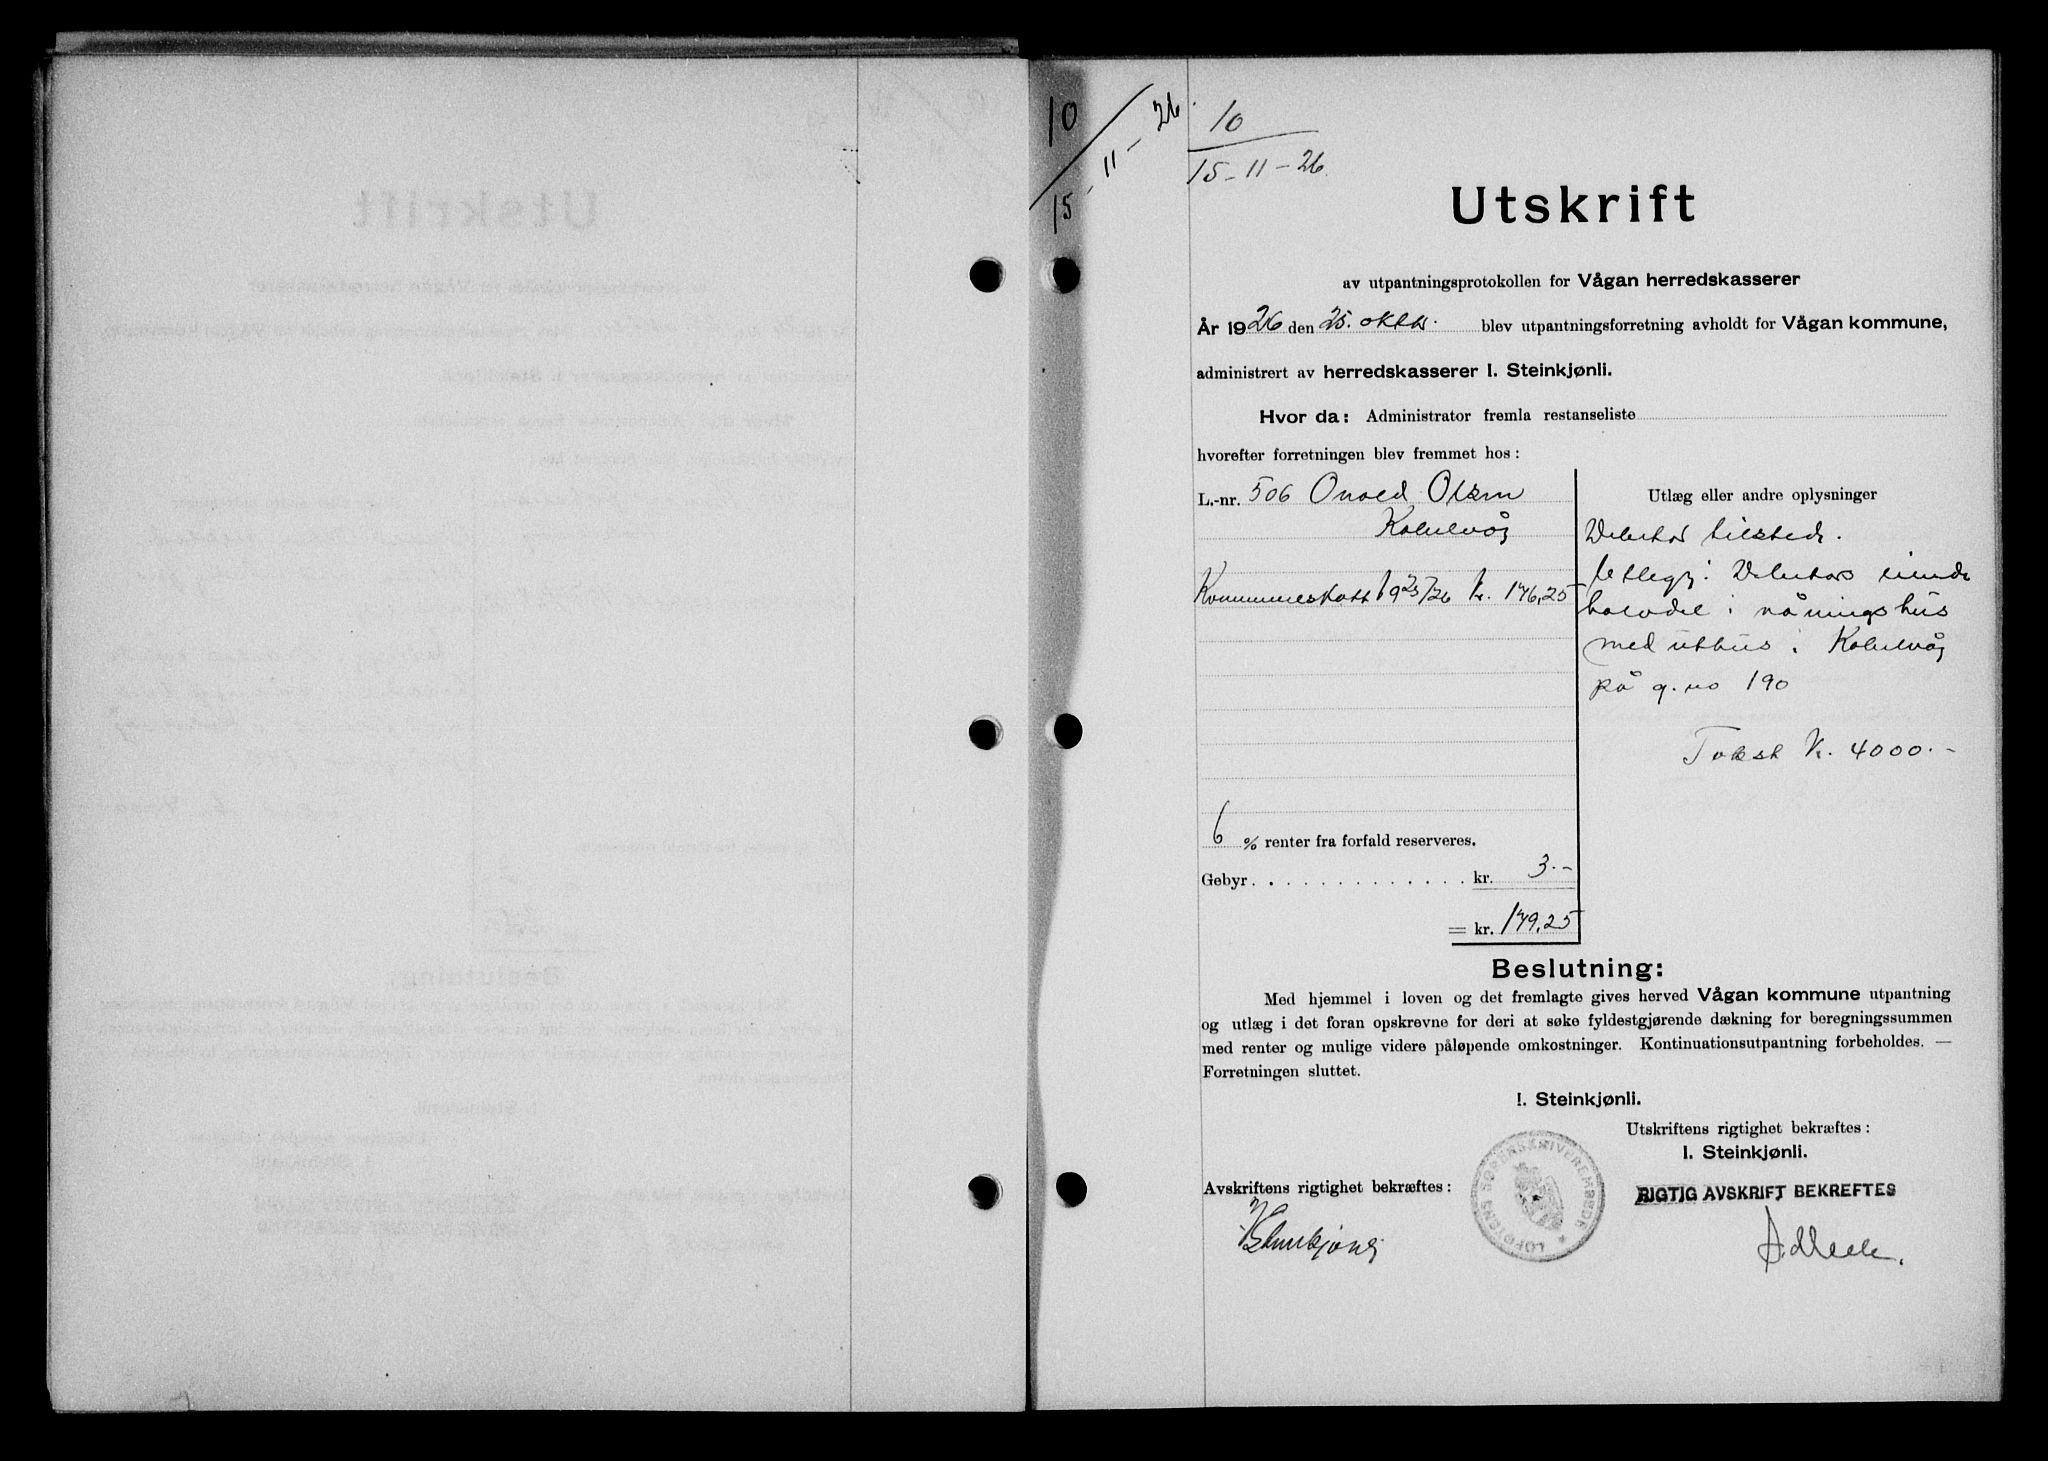 10
15 - 11 - 26
10
15 - 11 - 26
Utskrift
av utpantningsprotokollen for Vågan herredskasserer
År 1926 den 25. oktbr. blev utpantningsforretning avholdt for Vågan kommune,
administrert av herredskasserer I. Steinkjønli.
Hvor da: Administrator fremla restanseliste
hvorefter forretningen blev fremmet hos:
L.-nr. 506 Onold Olsen
Kabelvåg
Kommuneskatt 1925/26 kr. 176,25
Utlæg eller andre oplysninger
Debitor tilstede.
Utlegg: Debitors eiende
halvdel i våningshus
med uthus i Kabelvåg
på g.no 190
Takst kr. 4000.-
6 % renter fra forfald reserveres.
Gebyr . . . . . . . . . . . . . kr. 3.-
= kr. 179,25
Beslutning:
Med hjemmel i loven og det fremlagte gives herved Vågan kommune utpantning
og utlæg i det foran opskrevne for deri at søke fyldestgjørende dækning for beregningssummen
med renter og mulige videre påløpende omkostninger. Kontinuationsutpantning forbeholdes. —
Forretningen sluttet.
I. Steinkjønli.
Utskriftens rigtighet bekræftes:
I. Steinkjønli.
Avskriftens rigtighet bekræftes:
Steinkjønli
LOFOTENS SORENSKRIVEREMBEDE
RIGTIG AVSKRIFT BEKREFTES